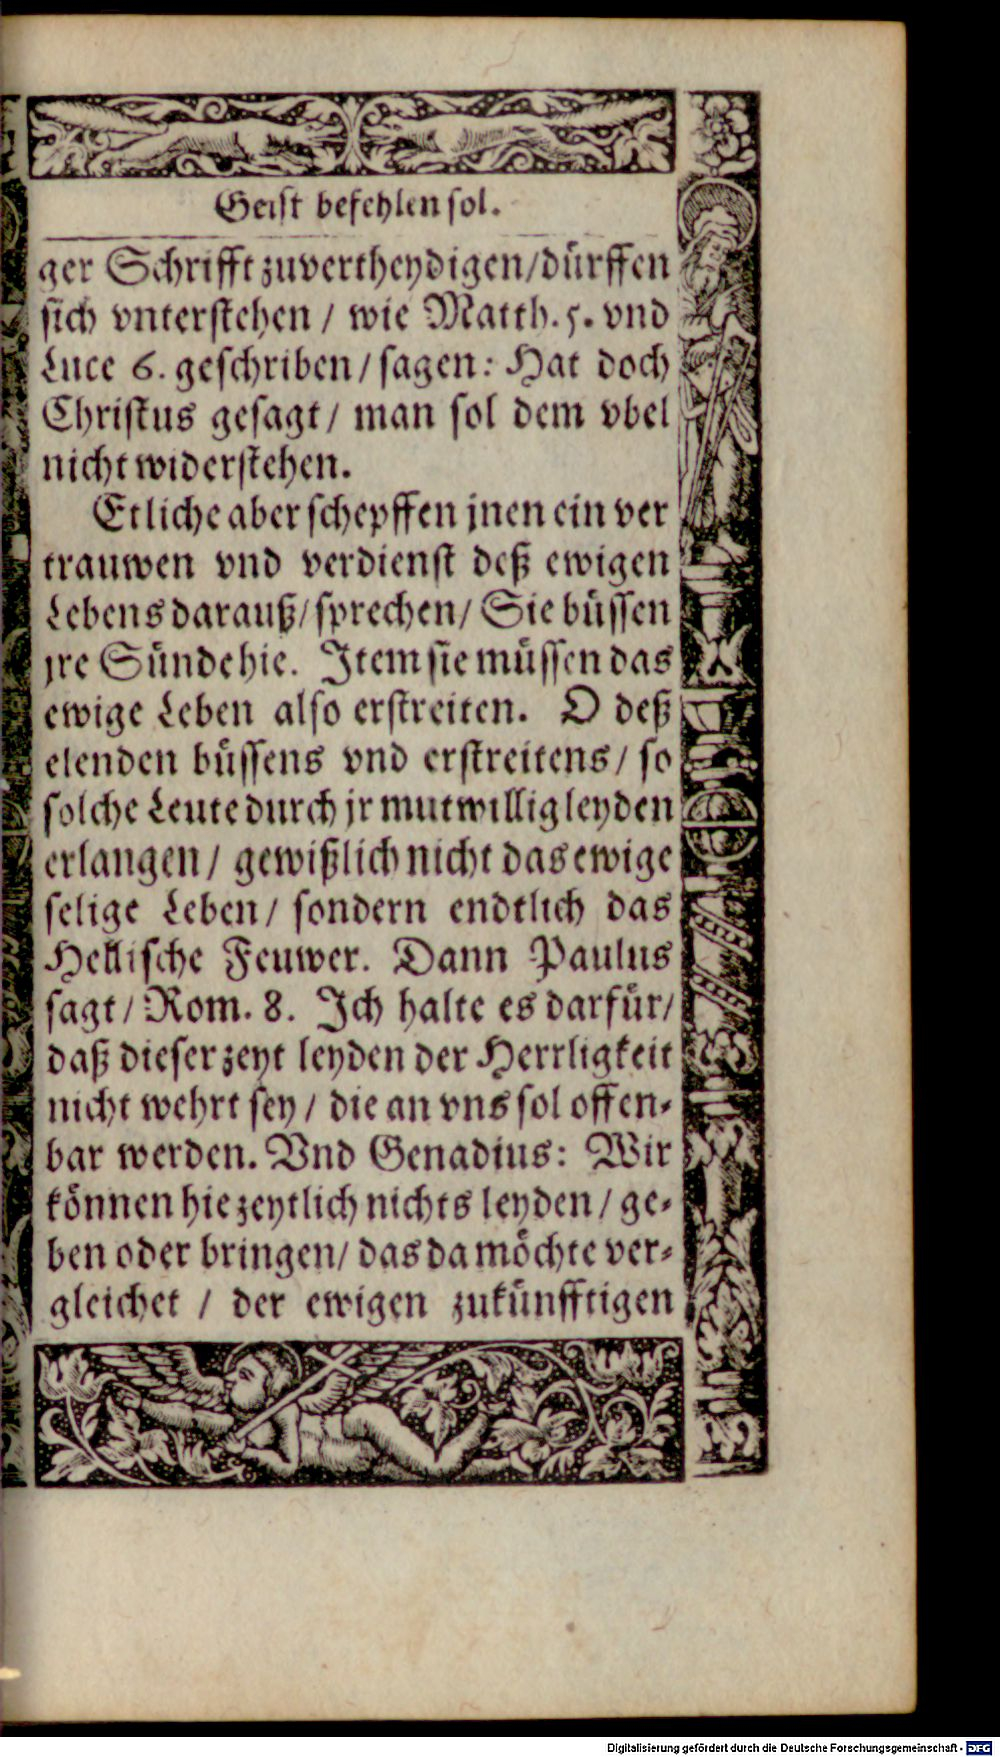 Geist befehlen sol.
ger Schrifft zuvertheydigen/dürffen
sich vnterstehen / wie Matth. 5. vnd
Luce 6. geschriben / sagen: Hat doch
Christus gesagt / man sol dem vbel
nicht widerstehen.
Etliche aber schepffen jnen ein ver
trauwen vnd verdienst deß ewigen
Lebens darauß/ sprechen/ Sie büssen
jre Sünde hie. Item sie müssen das
ewige Leben also erstreiten. O deß
elenden büssens vnd erstreitens / so
solche Leute durch jr mutwillig leyden
erlangen / gewißlich nicht das ewige
selige Leben / sondern endtlich das
Hellische Feuwer. Dann Paulus
sagt / Rom. 8. Ich halte es darfür/
daß dieser zeyt leyden der Herrligkeit
nicht wehrt sey / die an vns sol offen-
bar werden. Vnd Genadius: Wir
können hie zeytlich nichts leyden / ge-
ben oder bringen/ das da möchte ver-
gleichet / der ewigen zukünfftigen
Digitalisierung gefördert durch die Deutsche Forschungsgemeinschaft - DFG